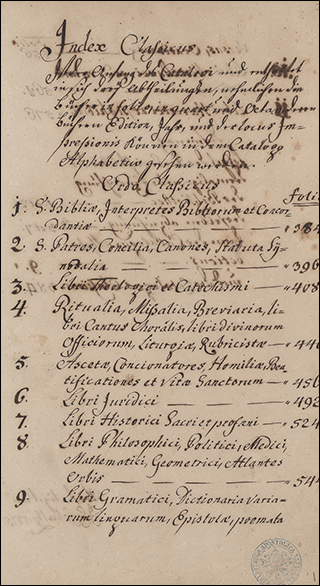 Index Classicus.
Ist der Anfang des Catalogi und enthaltet
in sich dreÿ Abtheilungen, in welchen die
Bücher in folio in quart und Octav deren
büchern Edition, Jahr, und der locus Im-
pressionis können in dem Catalogo
Alphabetico gesehen werden.
Ordo Classicus
folio
1. S. Bibliæ, Interpretes Bibliorum et Concor
dantiæ — " 384
2. S. Patres, Concilia, Canones, Statuta Sÿ-
nodalia — " 396
3. Libri Theologici et Catechismi — " 408
4. Ritualia, Missalia, Breviaria, li-
bri Cantus Choralis, libri divinorum
Officiorum, Liturgiæ, Rubricistæ — " 440
5. Ascetæ, Concionatores, Homiliæ, Bea
tificationes et Vitæ Sanctorum — " 456
6. Libri Juridici — " 492
7. Libri Historici Sacri et profani — " 524
8. Libri Philosophici, Politici, Medici,
Mathematici, Geometrici, Atlantes
Orbis — " 544
9. Libri Gramatici, Dictionaria Varia-
rum linguarum, Epistolæ, poemata